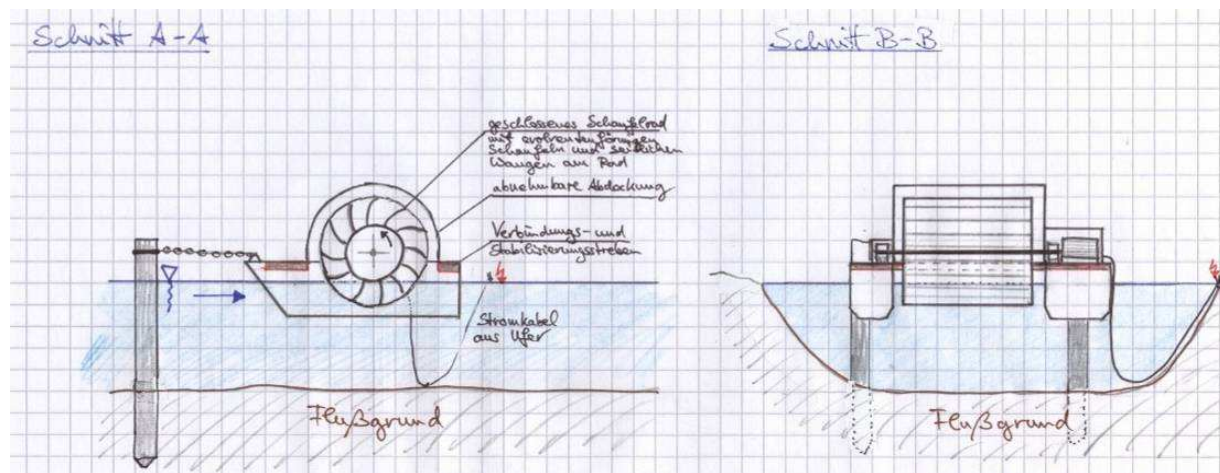 Schnitt A-A
Schnitt B-B
geschlossenes Schaufelrad
mit evolventenförmigen
Schaufeln und seitlichen
Wangen am Rad
abnehmbare Abdeckung
Verbindungs- und
Stabilisierungsstreben
Stromkabel
ans Ufer
Flußgrund
Flußgrund